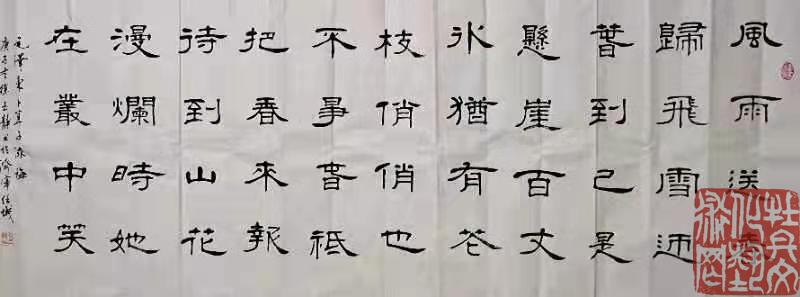 風雨送春
歸飛雪迎
春到已是
懸崖百丈
冰猶有花
枝俏俏也
不爭春祗
把春來報
待到山花
漫爛時她
在叢中笑
毛澤東卜算子詠梅
庚子